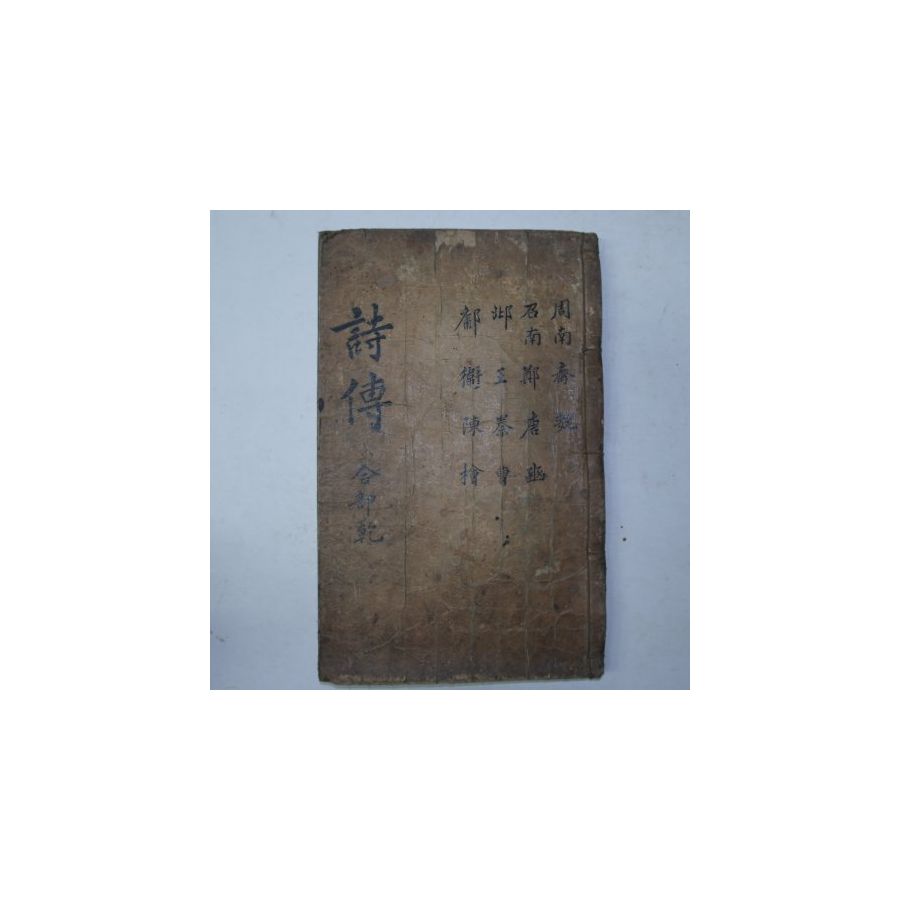 周南 齊 魏
召南 鄭 唐 豳
邶 王 秦 曹
鄘 衛 陳 檜
詩傳 合部乾